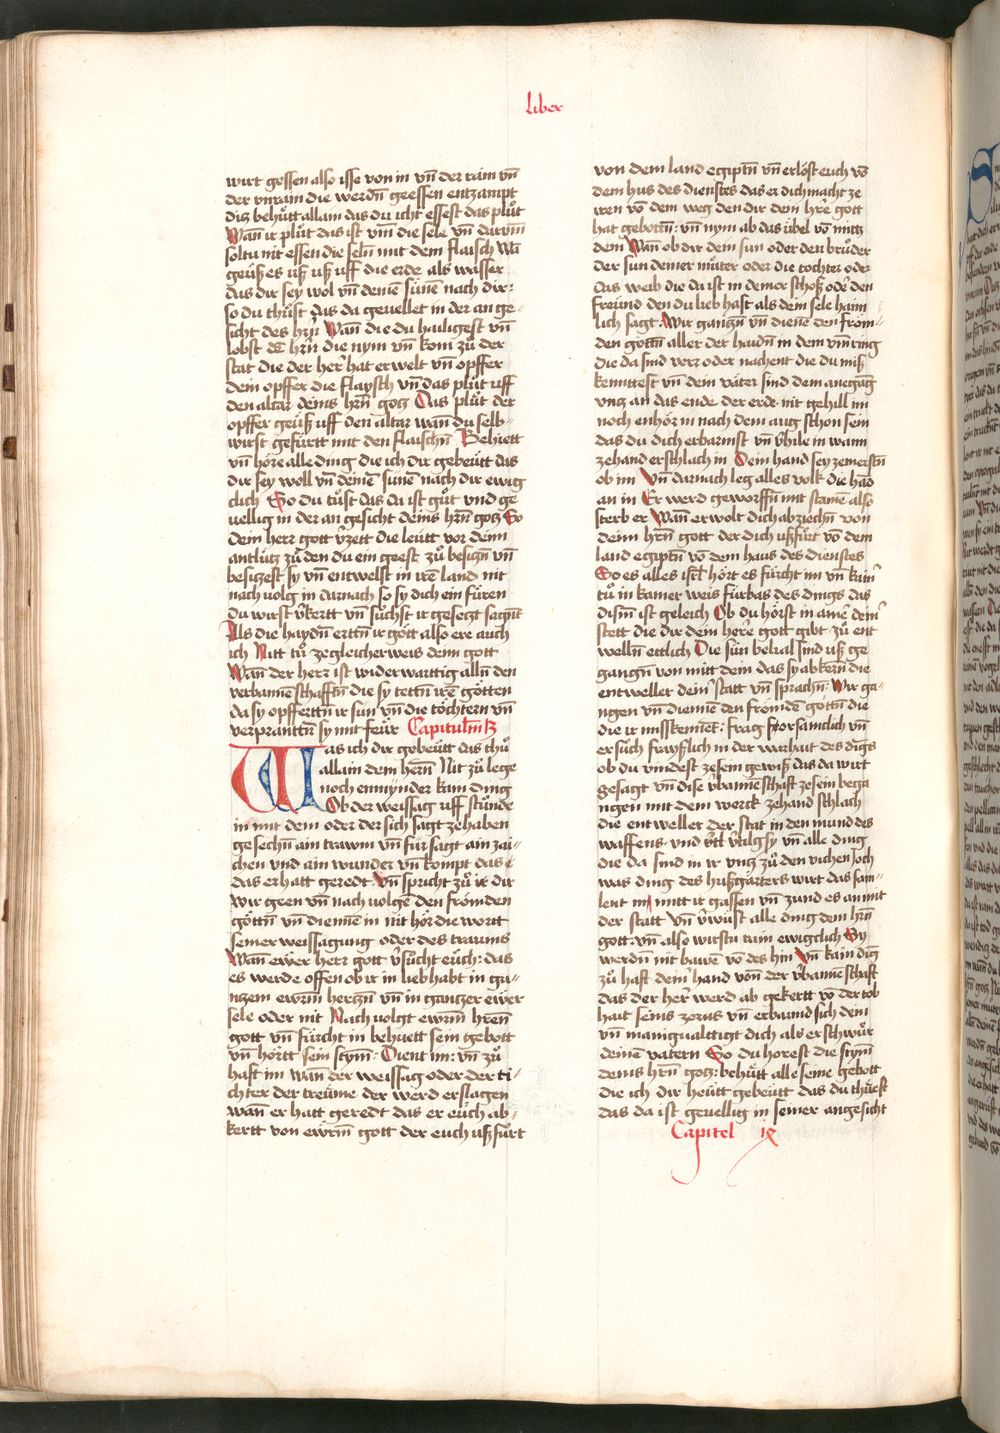 liber
wirt gessen also isse von in vn̄ der rain vn̄
der vnrain die werdn̄ geessen entzampt
dis behu̍tt allain das du icht essest das plůt
Wan̄ ir plůt das ist vm̄ die sele vn̄ darum̄
soltu nit essen die seln̄ mit dem flaisch Wā
geůß es uß uff die erde als wasser
das dir sey wol vn̄ deinē sünē nach dir:
so du thůst das da geuellet in der an ge-
sicht des hr̄n Wan̄ die du hailigest vn̄
lobst dē hr̄n die nym vn̄ kom zů der
stat die der her hat erwelt vn̄ opffer
dein opffer die flaysch vn̄ das plůt uff
den altar deins hr̄n gotz Das plůt der
opffer geůß uff den altar wan̄ du selb-
wirst gefürtt mit den flaischn̄ Behiett
vn̄ höre alle ding die ich dir gebeůtt das
dir sey woll vn̄ deinen sünē nach dir ewig
clich So du tůst das da ist gůt vnd ge
uellig in der an gesicht deins hr̄n gotz So
dein herr gott v̄zett die leütt vor deim
antlütz zů den du ein geest zů besitzn̄ vn̄
besitzest sy vn̄ entwelst in irē land nit
nach volg in darnach so sy dich ein füren
du wirst v̄kertt vn̄ sůchst ir gesetzt sagn̄t
Als die haydn̄ ertn̄ ir gött also ere auch
ich Nitt tů zegleicherweis dem gott
Wan̄ der herr ist widerwarttig alln̄ den
verbannēschafftn̄ die sy tettn̄ irē götten
da sy opffertn̄ ir sun vn̄ die töchtern vn̄
verprantn̄ sy mit feür Capitulm̄ 8
Was ich dir gebeütt das thů
allain dem hern̄ Nit zů lege
noch emmynder kain ding
Ob der weissag uff stůnde
in mit dein oder der sich sagt ze haben
gesechn̄ ain trawm vn̄ für sagt ain zai-
chen vnd ain wunder vn̄ kompt das
das er hatt geredt vn̄ spricht zů ir dir
wir geen vn̄ nach volgē den frömden
göttn̄ vn̄ dienen in nit hör die wortt
seiner weissagung oder des traums
Wan̄ ewer herr gott v̄sůcht eüch: das
es werde offen ob ir in lieb habt in ga-
ntzem ewrm hertzn̄ vn̄ in gantzer ewer
sele oder nit Nach volgt ewrm hr̄en
gott vn̄ fürcht in behüett sein gebott
vn̄ hörtt sein stym̄: Dient im: vn̄ zů
hafft im Wan̄ der weissag oder der ti-
chter der treüme der werd erslagen
wan̄ er hatt geredt das er eüch ab-
kertt von ewrm gott der euch ußfůrt
von dem land egiptn̄ vn̄ erlöst euch vō
dem hus des dienstes das er dich macht ze
irren vō dem weg den dir dein hr̄e gott
hat gebottn̄: vn̄ nym ab das übel vō mitz
dein Wan̄ ob dir dein sun oder den brůder
der sun deiner můter oder die tochter oder
das weib die da ist in deiner schoß oder den
freünd den du lieb hast als dein sele haim
lich sagt: Wir gangn̄ vn̄ dienē den fröm-
den göttn̄ aller der haidn̄ in dem vm̄ring
die da sind verr oder nachent die du nit
kenntest vn̄ dein väter sind dem anegāg
vntz an das ende der erde nit gehill im
noch enhör in nach dein aug schon sein
das du dich erbarmst vn̄ v̄hile in wann
zehand erschlach in Dein hand sey zemerstn̄
ob im Vn̄ darnach leg alles volk die had
an in Er werd geworffn̄ mit stainē also
sterb er Wan̄ er wolt dich abziechn̄ von
deim hr̄n gott der dich ußfürt vō dem
land egiptn̄ vō dem haus des dienstes
So es alles isrl̄ hört es fürcht im vn̄ kain
tů in kainer weis fürbas des dings das
disem̄ ist geleich Ob du hörst in ainē dein
stett die dir dein herre gott gibt zů ent
welln̄ ettlich Die sün belial sind uß ge
gangn̄ von mitt dein das sy abkern̄ die
entweller dein statt vn̄ sprachn̄: Wir ga-
ngen vn̄ dienen den frömde göttn̄ die
die ir nisskennet: frag fürsamclich vn̄
ersůch fraysslich in der warhait des digs
ob du vindest ze sein gewiß das da wirt
gesagt vn̄ dise v̄banneschaft ze sein bega
ngen mit dem werck zehand schlach
die entweller der stat in den mund des
waffens. vnd v̄tilg sy vn̄ alle ding
die da sind in ir vntz zů den vichen joch
was ding des hußgärters wirt das sam-
lent in mitt ir gassen vn̄ zund es an mit
der statt Vn̄ v̄wüst alle ding dem hr̄n
gott: vn̄ also wirstu rain ewigclich Sy
werdn̄ nit bawē vō des hin Vn̄ kain ding
zů haft dein hand von̄ der v̄banneschaft
das der her werd ab gekertt vō der tob
hait seins zorns vn̄ erbarmd sich dein
vn̄ manigualttigt dich als er schwůr
deinē vatern So du hörest die stym̄
deins hr̄n gotz: behütt alle seine gebott
die ich dir heütt gebeütt das du thüest
das da ist geuellig in seiner angesicht
Capitel ix